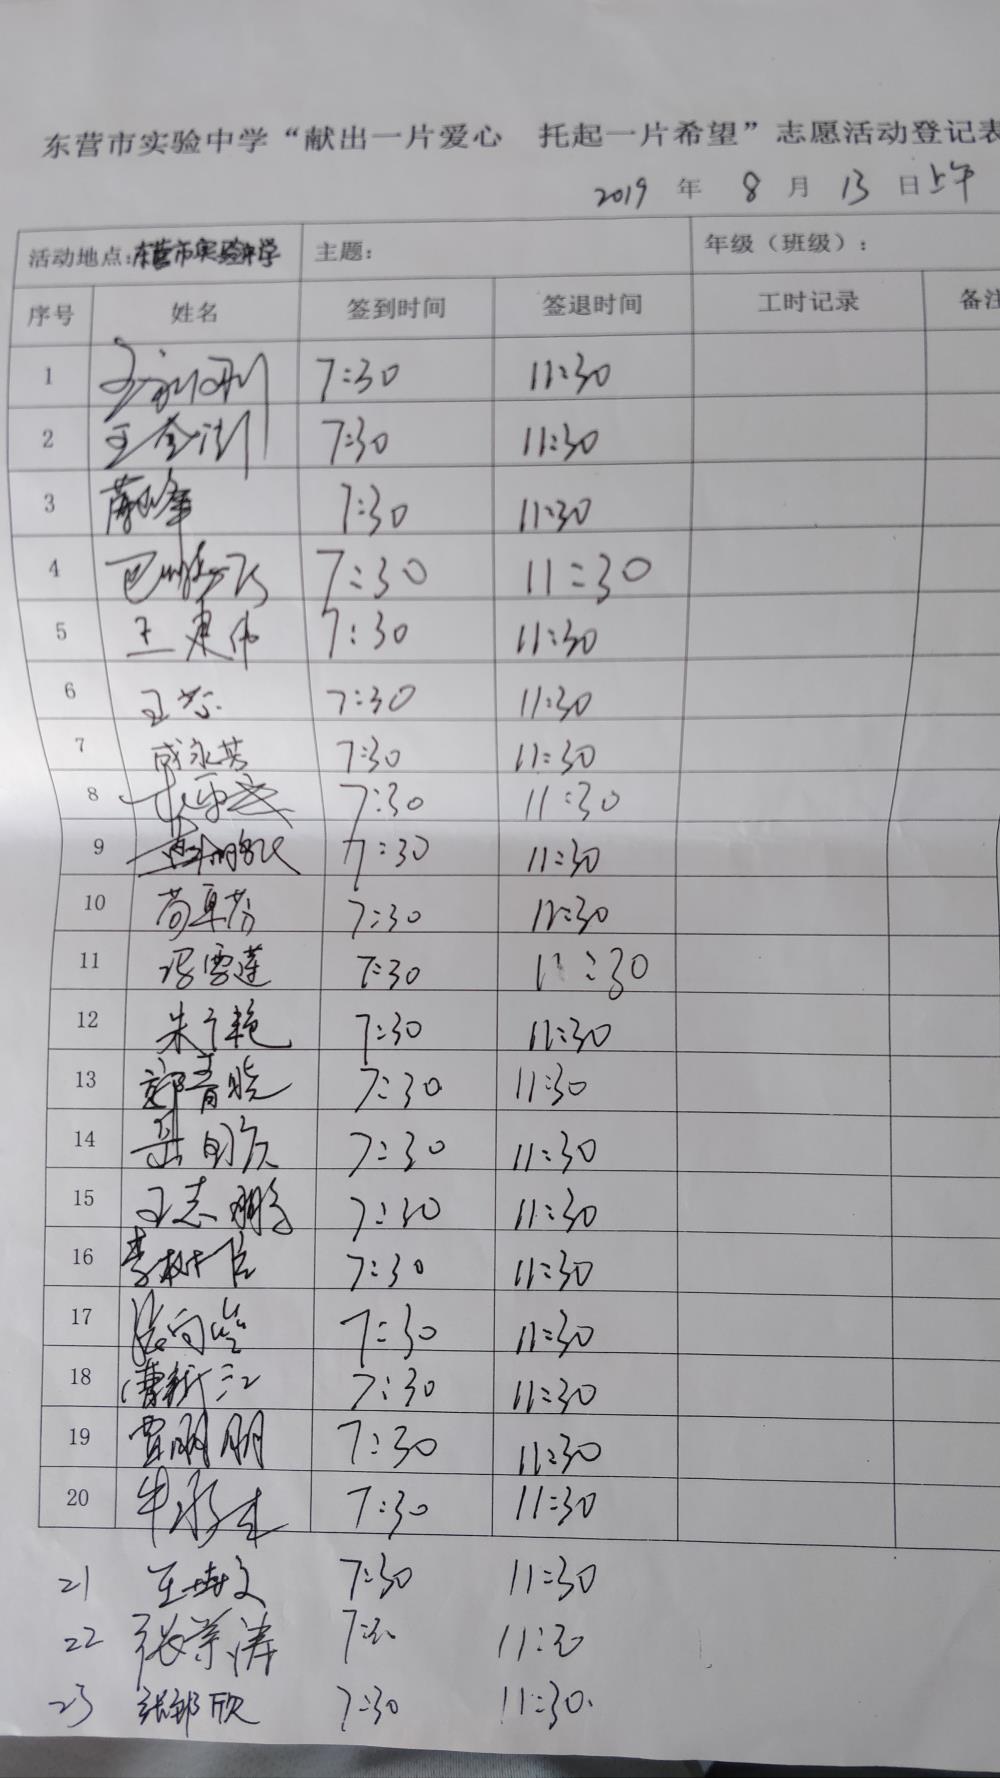 东营市实验中学“献出一片爱心 托起一片希望”志愿活动登记表
2019 年 8 月 13 日上午
活动地点:东营市实验中学 主题: 年级（班级）:
序号 姓名 签到时间 签退时间 工时记录 备注
1 7:30 11:30
2 王金 7:30 11:30
3 7:30 11:30
4 7:30 11:30
5 王建伟 7:30 11:30
6 王芯 7:30 11:30
7 成永芳 7:30 11:30
8 7:30 11:30
9 7:30 11:30
10 苟卓芬 7:30 11:30
11 冯雪莲 7:30 11:30
12 朱广艳 7:30 11:30
13 郑青晓 7:30 11:30
14 岳 7:30 11:30
15 王志鹏 7:30 11:30
16 李树 7:30 11:30
17 张向 7:30 11:30
18 曹新江 7:30 11:30
19 贾朋朋 7:30 11:30
20 牛 7:30 11:30
21 王 文 7:30 11:30
22 张荣涛 7:30 11:30
23 张郑欣 7:30 11:30